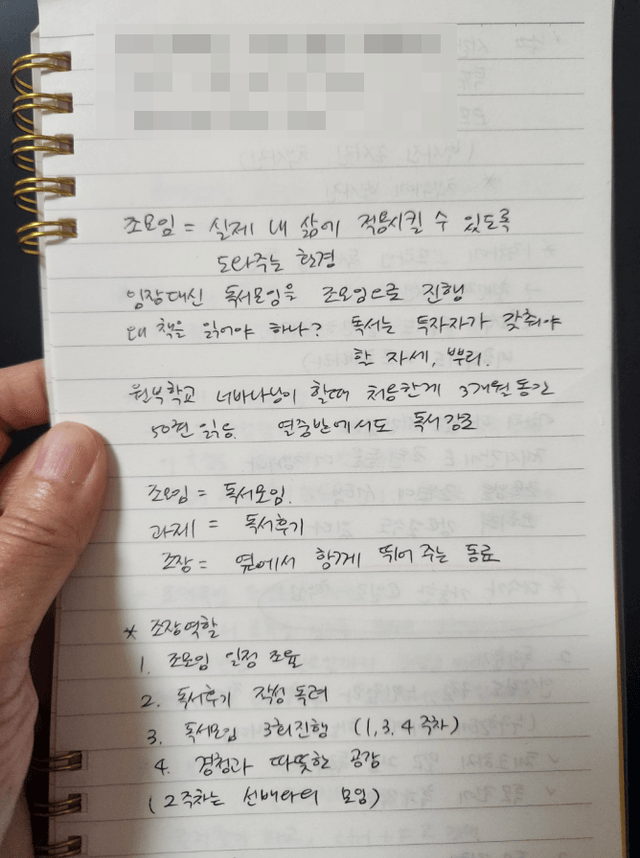 조모임 = 실제 내 삶에 적용시킬 수 있도록
도와주는 환경
임장대신 독서모임을 조모임으로 진행
왜 책을 읽어야 하나? 독서는 투자자가 갖춰야
할 자세, 뿌리.
월부학교 너바나님이 할때 처음한게 3개월동안
50권 읽능. 열중반에서도 독서강조
조모임 = 독서모임.
과제 = 독서후기
조장 = 옆에서 함께 뛰어 주는 동료
* 조장역할
1. 조모임 일정 조율
2. 독서후기 작성 독려
3. 독서모임 3회진행 (1, 3, 4주차)
4. 경청과 따뜻한 공감
(2주차는 선배와의 모임)